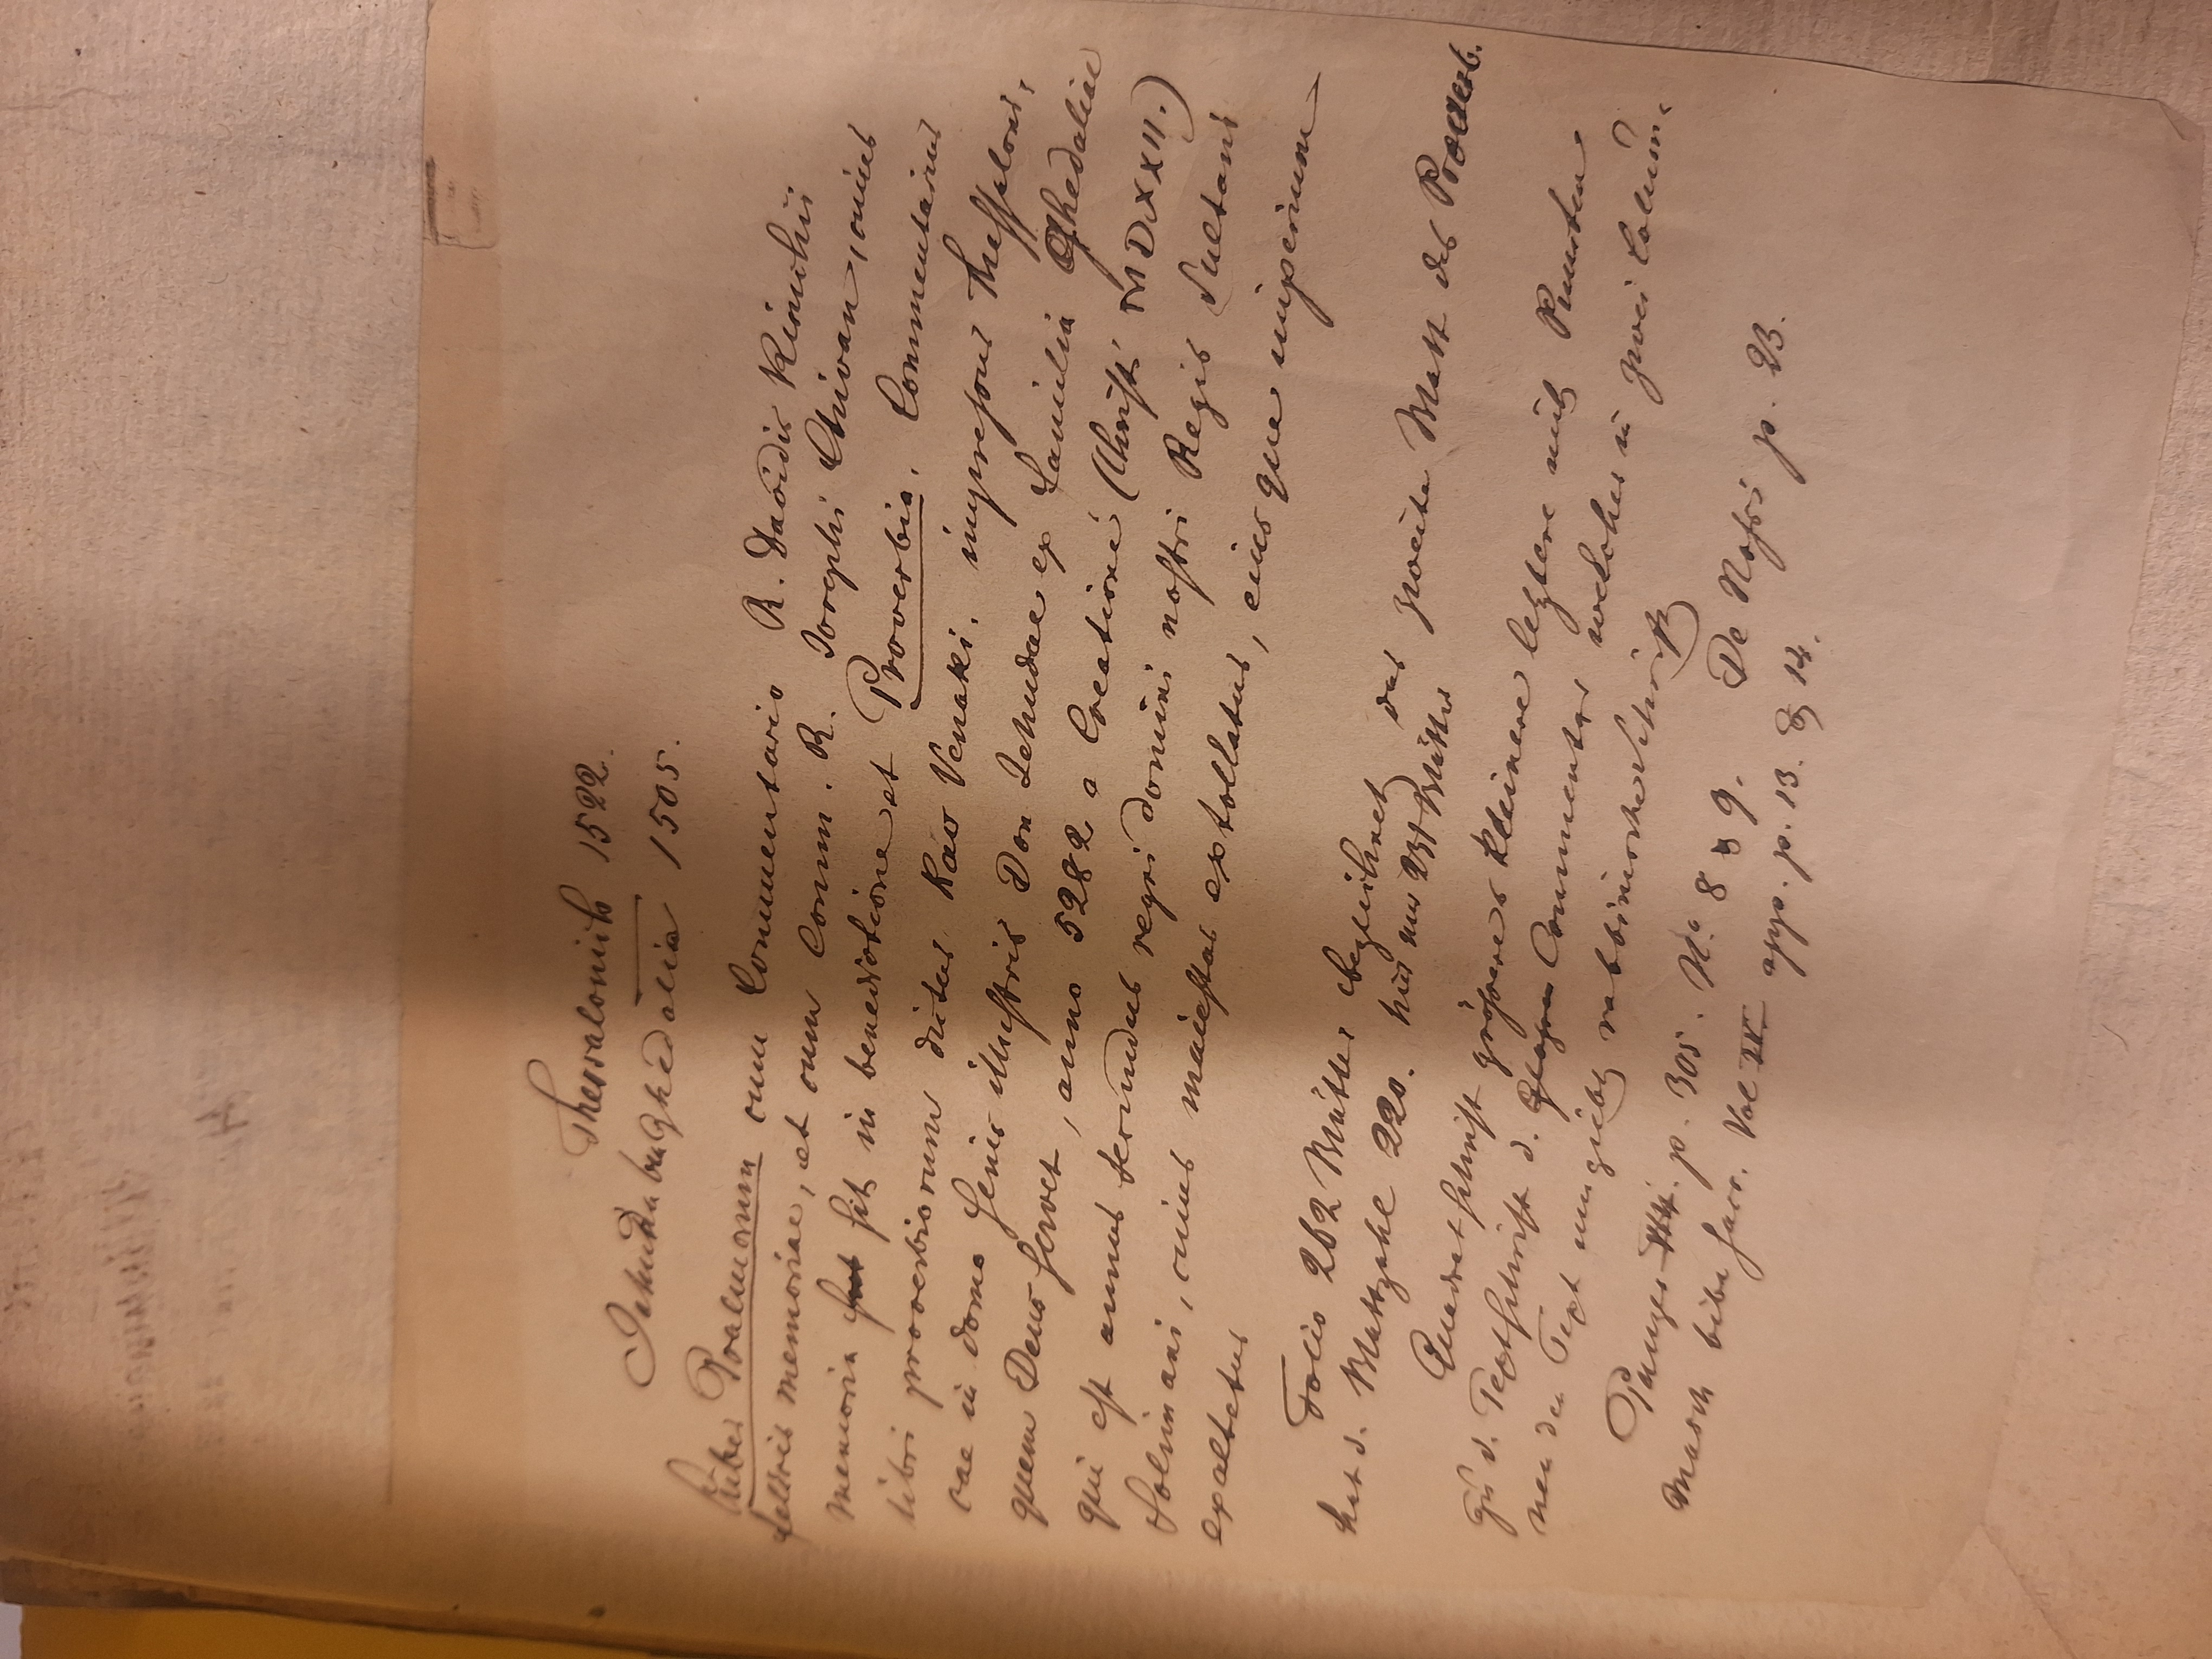 Thessalonich 1522.
Jehuda ben Ghedalia 1505.
Liber Psalmorum cum Commentario R. Davidis Kimchii
felicis memoriae, et cum Comm. R. Josephi Chivan, cuius
memoria sit in benedictione et Proverbia. Commentarius
libri proverbiorum dictus Kav Venaki. impressus Thessaloni,
cae in domo senis illustris Don Jehudae ex familia Ghedaliae
quem Deus servet, anno 5282 a Creatione (Christi MDXXII.)
qui est annus secundus regni domini nostri Regis Sultani
Solimani, cuius maiestas extollatur, eiusque imperium
exaltetur
Folio 262 Blätter bezeichnet das zweite Blatt der Proverb.
hat d. Blattzahl 220. hier nur 231 Blätter
Quadratschrift grössere & kleinere letztere mit Puncten
zu d. Textschrift d. Commentar welcher in zwei Colum,
nen den Text umgiebt rabbinische Schrift
Panzer p. 305. No. 8 & 9. De Rossi p. 23.
Masch bibl. sacr. Vol IV. app. p. 13. & 14.